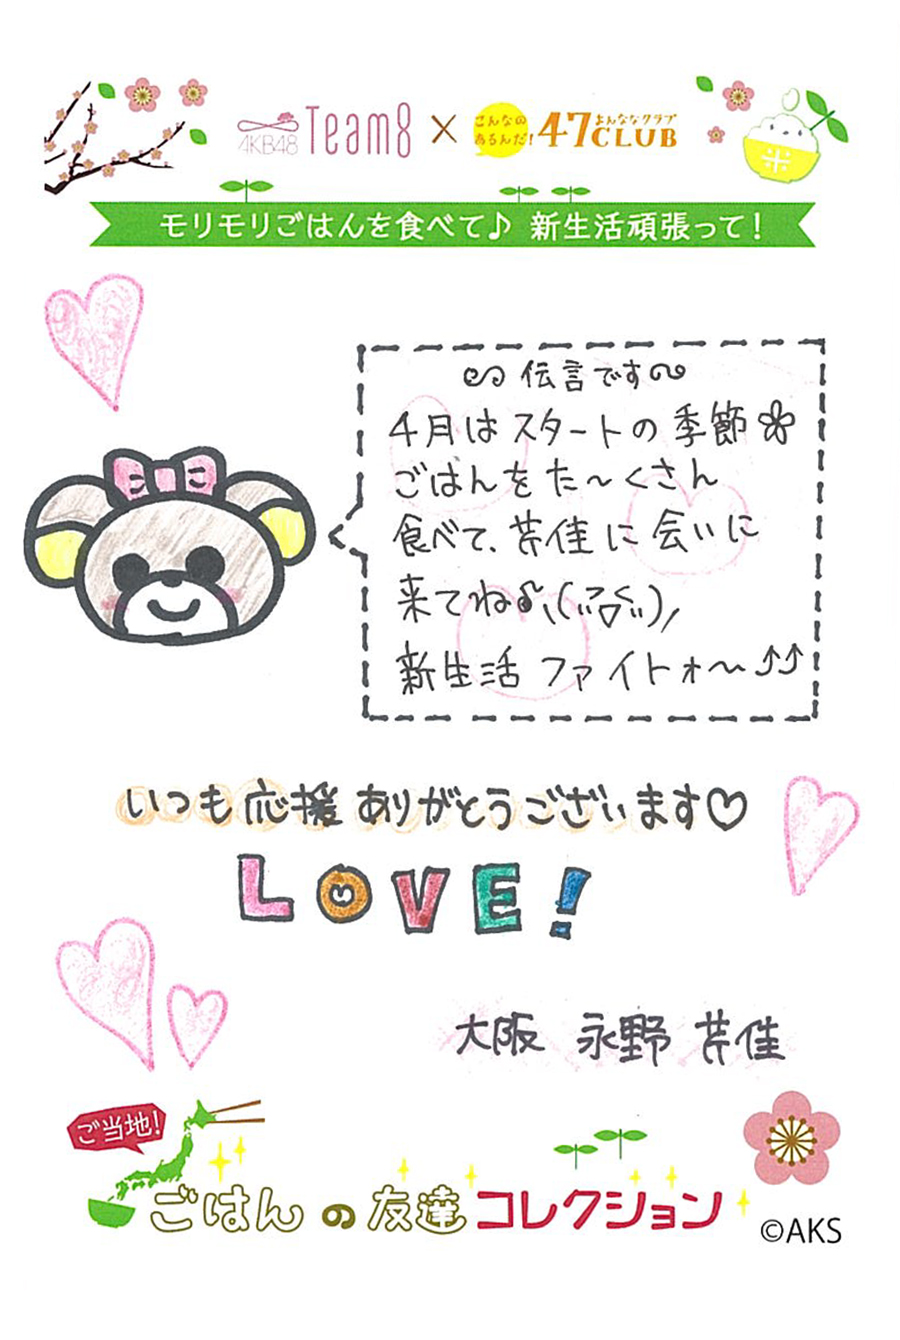 AKB48 Team8 × こんなの あるんだ! 47CLUB よんななクラブ
米
モリモリごはんを食べて♪ 新生活頑張って!
伝言です
4月はスタートの季節
ごはんをた〜くさん
食べて、芹佳に会いに
来てね
新生活 ファイトォ〜⤴⤴
いつも応援ありがとうございます♡
LOVE!
大阪 永野 芹佳
ご当地!
ごはんの友達コレクション
©AKS